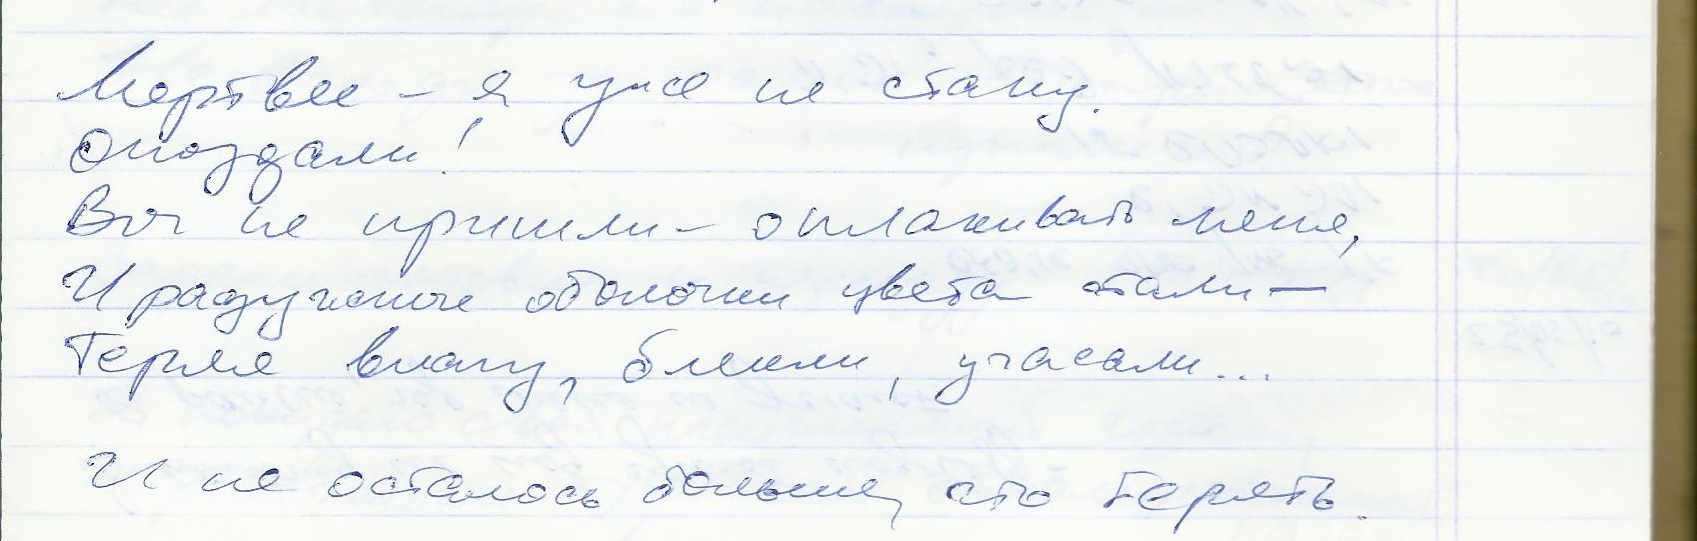 Мертвее – я уже не стану.
Опоздали!
Вы не пришли – оплакивать меня,
И радужные оболочки цвета стали –
Теряя влагу, блекли, угасали...
И не осталось больше, что терять.